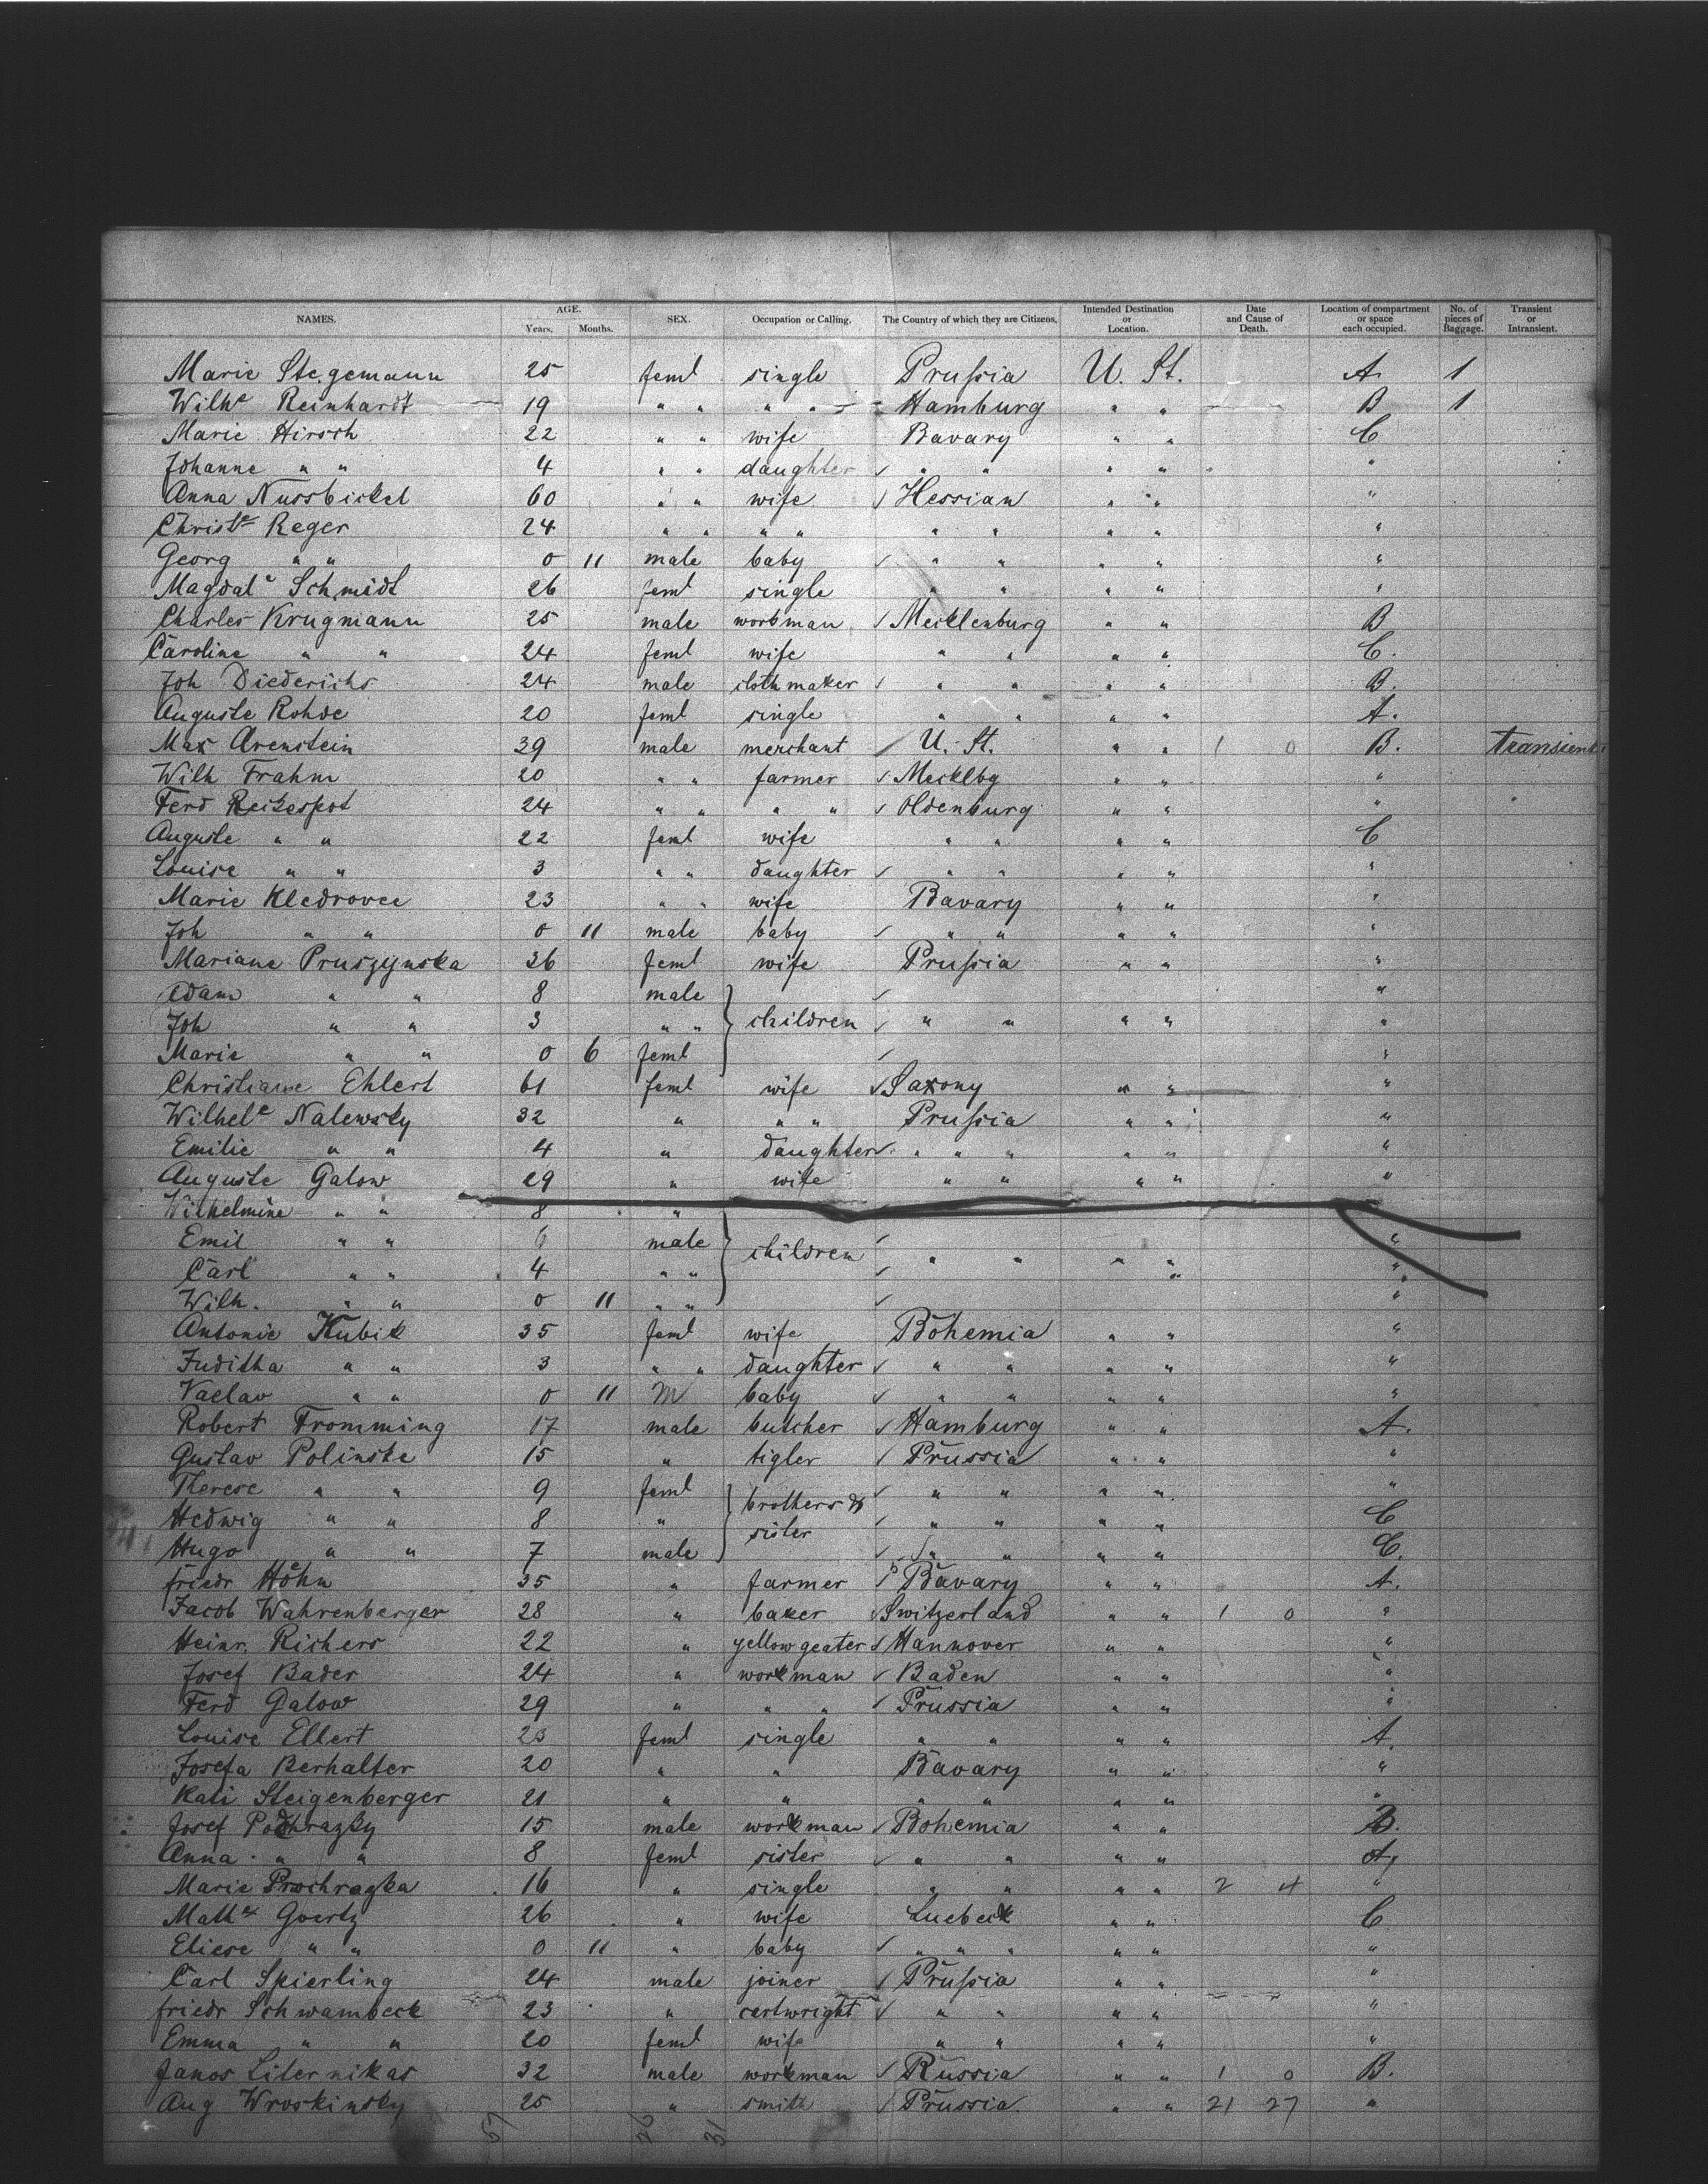 NAMES. AGE. Years. Months. SEX. Occupation or Calling. The Country of which they are Citizens. Intended Destination or Location. Date and Cause of Death. Location of compartment or space each occupied. No. of pieces of Baggage. Transient or Intransient.
Marie Stegemann 25 feml single Prussia U. St. A 1
Wilhe Reinhardt 19 " " " " Hamburg " " B 1
Marie Hirsch 22 " " wife Bavary " " C
Johanne " " 4 " " daughter " " " " "
Anna Nussbickel 60 " " wife Hessian " " "
Christe Reger 24 " " " " " " " " "
Georg " " 0 11 male baby " " " " "
Magdale Schmidt 26 feml single " " " " "
Charles Krugmann 25 male workman Mecklenburg " " B
Caroline " " 24 feml wife " " " " C.
Joh Diederichs 24 male clothmaker " " " " B.
Auguste Rohde 20 feml single " " " " A.
Max Arenstein 39 male merchant U. St. " " 1 0 B. transient
Wilh Frahm 20 " " farmer Mecklbg " " "
Ferd 24 " " " " Oldenburg " " "
Auguste " " 22 feml wife " " " " C
Louise " " 3 " " daughter " " " " "
Marie Kledrovee 23 " " wife Bavary " " "
Joh " " 0 11 male baby " " " " "
Mariane Pruszynska 26 feml wife Prussia " " "
Adam " " 8 male "
Joh " " 3 " " children " " " " "
Marie " " 0 6 feml "
Christiane Ehlert 61 feml wife Saxony " " "
Wilhele Nalewsky 32 " " " Prussia " " "
Emilie " " 4 " daughter " " " " " "
Auguste Galow 29 " wife " " " " "
Wilhelmine " " 8 "
Emil " " 6 male children "
Carl " " 4 " " " " " " "
Wilh. " " 0 11 " " "
Antonie Kubik 35 feml wife Bohemia " " "
Juditha " " 3 " " daughter " " " " "
Vaclav " " 0 11 M baby " " " " "
Robert Fromming 17 male butcher Hamburg " " A.
Gustav Polinske 15 " tigler Prussia " " "
Therese " " 9 feml brothers & " " " " "
Hedwig " " 8 " sister " " " " C
Hugo " " 7 male " " " " C.
friedr Höhn 35 " farmer Bavary " " A.
Jacob Wahrenberger 28 " baker Switzerland " " 1 0 "
Heinr. Richers 22 " yellow geater Hannover " " "
Josef Bader 24 " workman Baden " " "
Ferd Galow 29 " " " Prussia " " "
Louise Ellert 23 feml single " " " " A.
Josefa Berhalter 20 " " Bavary " " "
Kati Steigenberger 21 " " " " " " "
Josef Podhrazky 15 male workman Bohemia " " B.
Anna " " 8 feml sister " " " " A,
Marie 16 " single " " " " 2 4 "
Mathe Goertz 26 " wife Luebeck " " C
Eliese " " 0 11 " baby " " " " " "
Carl Spierling 24 male joiner Prussia " " "
friedr Schwambeck 23 " cartwright " " " " "
Emma " " 20 feml wife " " " " "
Janos Liternikas 32 male workman Russia " " 1 0 B.
Aug Wroskinsky 25 " smith Prussia " " 21 27 "
57 26 31